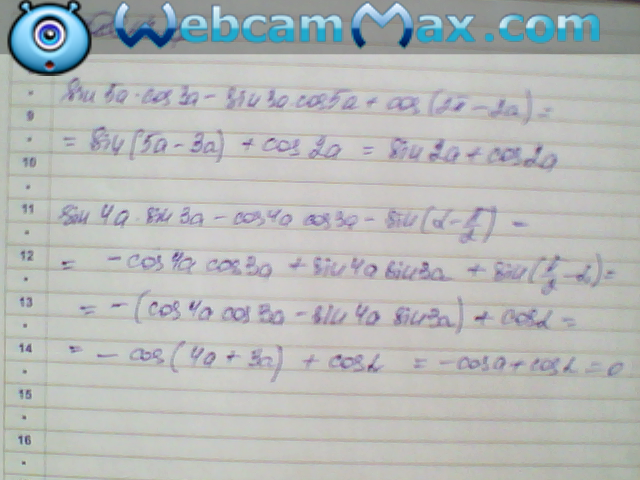 WebcamMax.com
sin 5a·cos 3a - sin 3a cos 5a + cos(2π - 2a) =
9
= sin(5a - 3a) + cos 2a = sin 2a + cos 2a
10
11
sin 4a · sin 3a - cos 4a cos 3a - sin(α - π/2) =
12
= - cos 4a cos 3a + sin 4a sin 3a + sin(π/2 - α) =
13
= - (cos 4a cos 3a - sin 4a sin 3a) + cos α =
14
= - cos(4a + 3a) + cos α = - cos a + cos α = 0
15
16